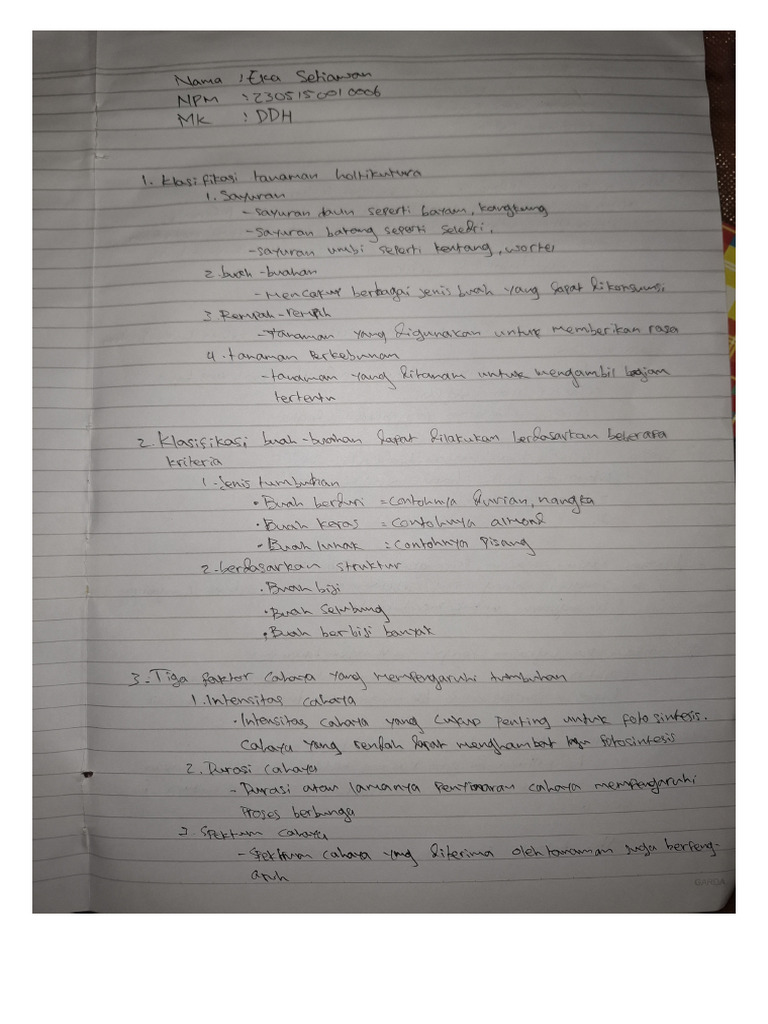 Nama : Eka Setiawan
NPM : 2305150010006
MK : DDH
1. Klasifikasi tanaman holtikutura
1. Sayuran
- sayuran daun seperti bayam, kangkung
- Sayuran batang seperti seledri.
- sayuran umbi seperti kentang, wortel
2. buah-buahan
- Mencakup berbagai jenis buah yang dapat dikonsumsi
3. Rempah-rempah
- tanaman yang digunakan untuk memberikan rasa
4. tanaman Perkebunan
- tanaman yang ditanam untuk mengambil bagian
tertentu
2. Klasifikasi buah-buahan dapat dilakukan berdasarkan beberapa
kriteria
1. Jenis tumbuhan
• Buah berduri = Contohnya durian, nangka
• Buah keras = Contohnya almond
• Buah lunak = Contohnya Pisang
2. berdasarkan struktur
• Buah biji
• Buah selubung
• Buah berbiji banyak
3. Tiga faktor Cahaya yang mempengaruhi tumbuhan
1. Intensitas cahaya
• Intensitas cahaya yang cukup penting untuk fotosintesis.
Cahaya yang rendah dapat menghambat fotosintesis
2. Durasi Cahaya
- Durasi atau lamanya Penyinaran cahaya mempengaruhi
Proses berbunga
3. Spektum cahaya
- Spektrum cahaya yang diterima oleh tanaman juga berpeng-
aruh